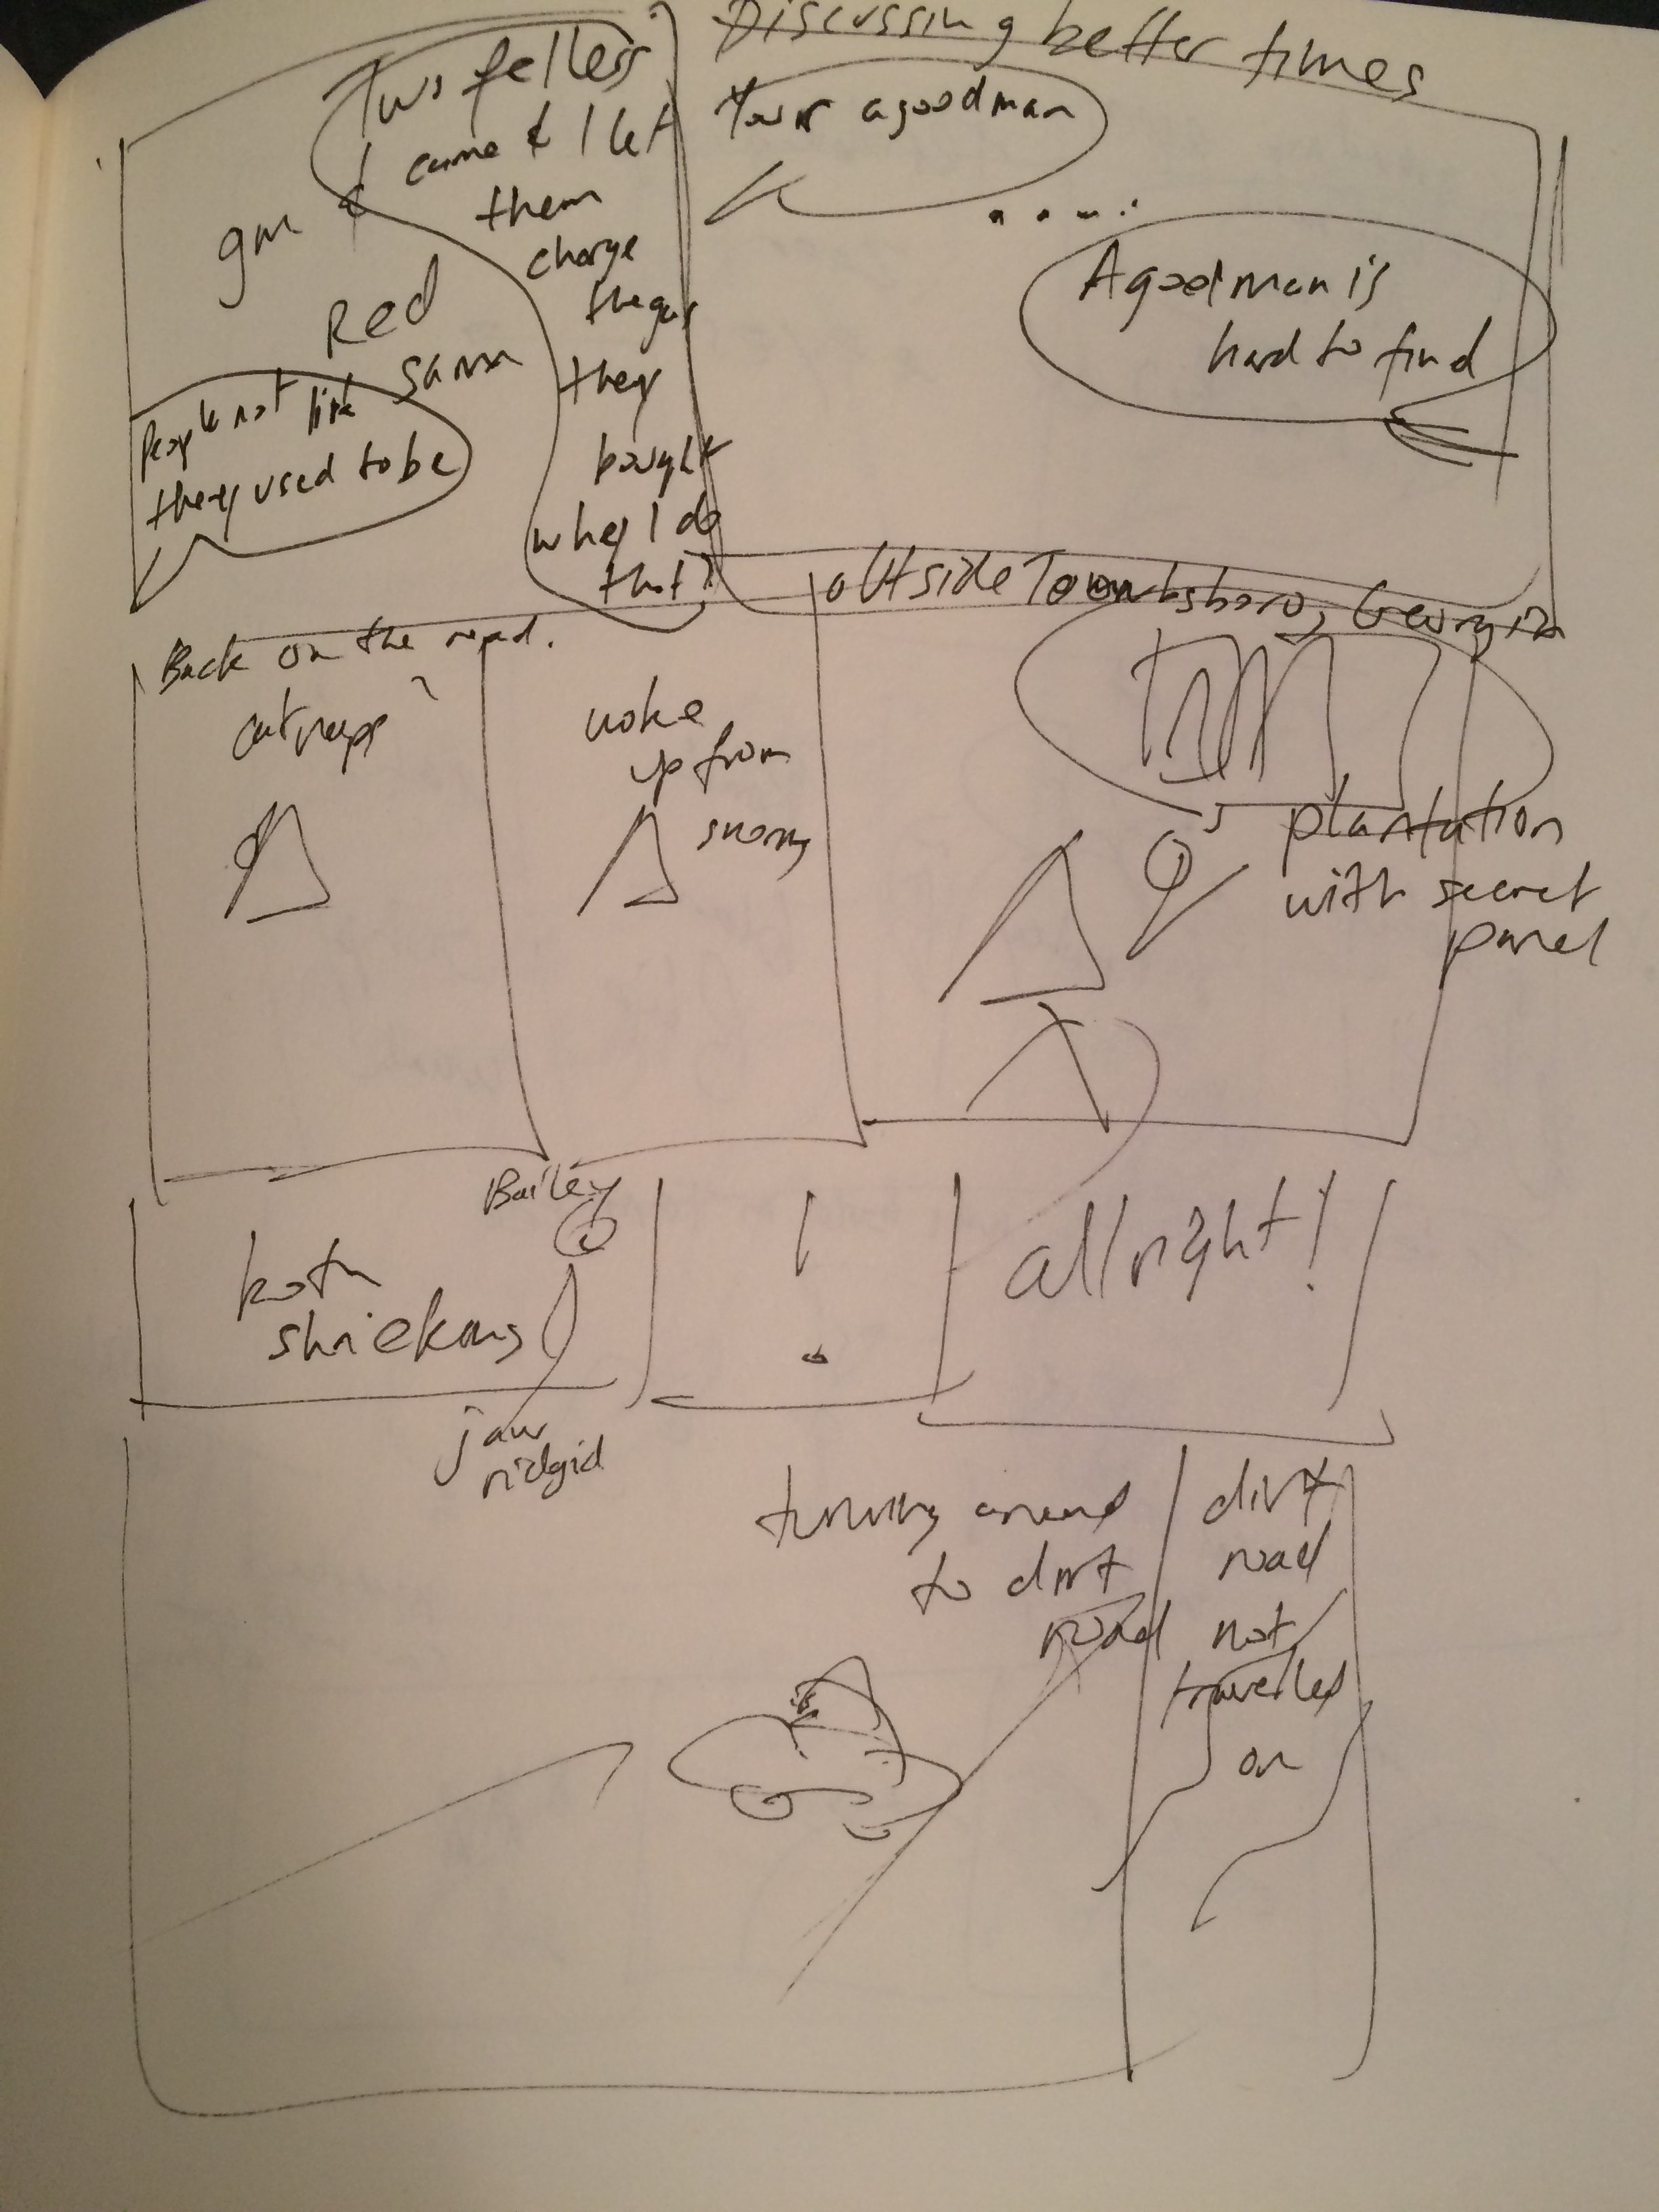 Two fellers
came & I let
them
charge
the gas
they
bought
why I do
that?
gm &
Red
Samm
People not like
they used to be
Discussing better times
Your a good man
. . . . .
A good man is
hard to find
Back on the road.
catnaps
woke
up from
snoring
outside Toombsboro, Georgia
plantation
with secret
panel
Bailey
both
shrieking
jaw
ridgid
!
all right!
turning around
to dirt
road
dirt
road
not
travelled
on